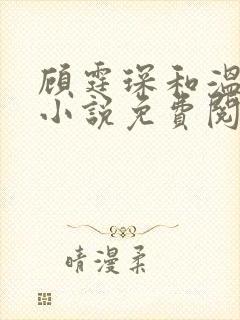 顾霆琛和温
小说免费阅
晴漫柔